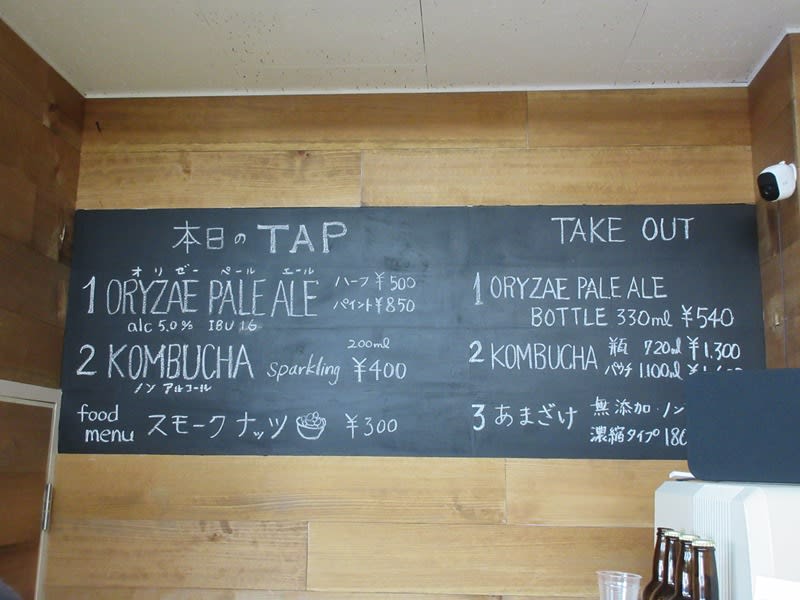 本日の TAP
オリゼー ペール エール
1 ORYZAE PALE ALE ハーフ ¥500
パイント ¥850
alc 5.0% IBU 16
2 KOMBUCHA sparkling 200ml ¥400
ノンアルコール
food menu スモークナッツ ¥300
TAKE OUT
1 ORYZAE PALE ALE
BOTTLE 330ml ¥540
2 KOMBUCHA 瓶 720ml ¥1,300
パウチ 1,100ml
3 あまざけ 無添加・ノン
濃縮タイプ 180